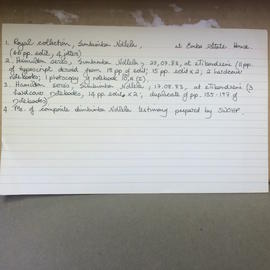 1. Royal collection, Simbimba Ndlela, at Embo State House
(66 pp. edit, 4 jotters)
2. Hamilton series, Simbimba Ndlela, 27.07.83, at eTibondzeni (11 pp.
of typescript derived from 15 pp of edit; 15 pp. edit x 2; 2 hardcover
notebooks; 1 photocopy of notebook
3. Hamilton series, Simbimba Ndlela, 17.08.83, at eTibondzeni (3
hardcover notebooks, 14 pp. edit x 2; duplicate of pp. 155-197 of
notebooks)
4. Ms. of composite Simbimba Ndlela testimony prepared by SWOHP.